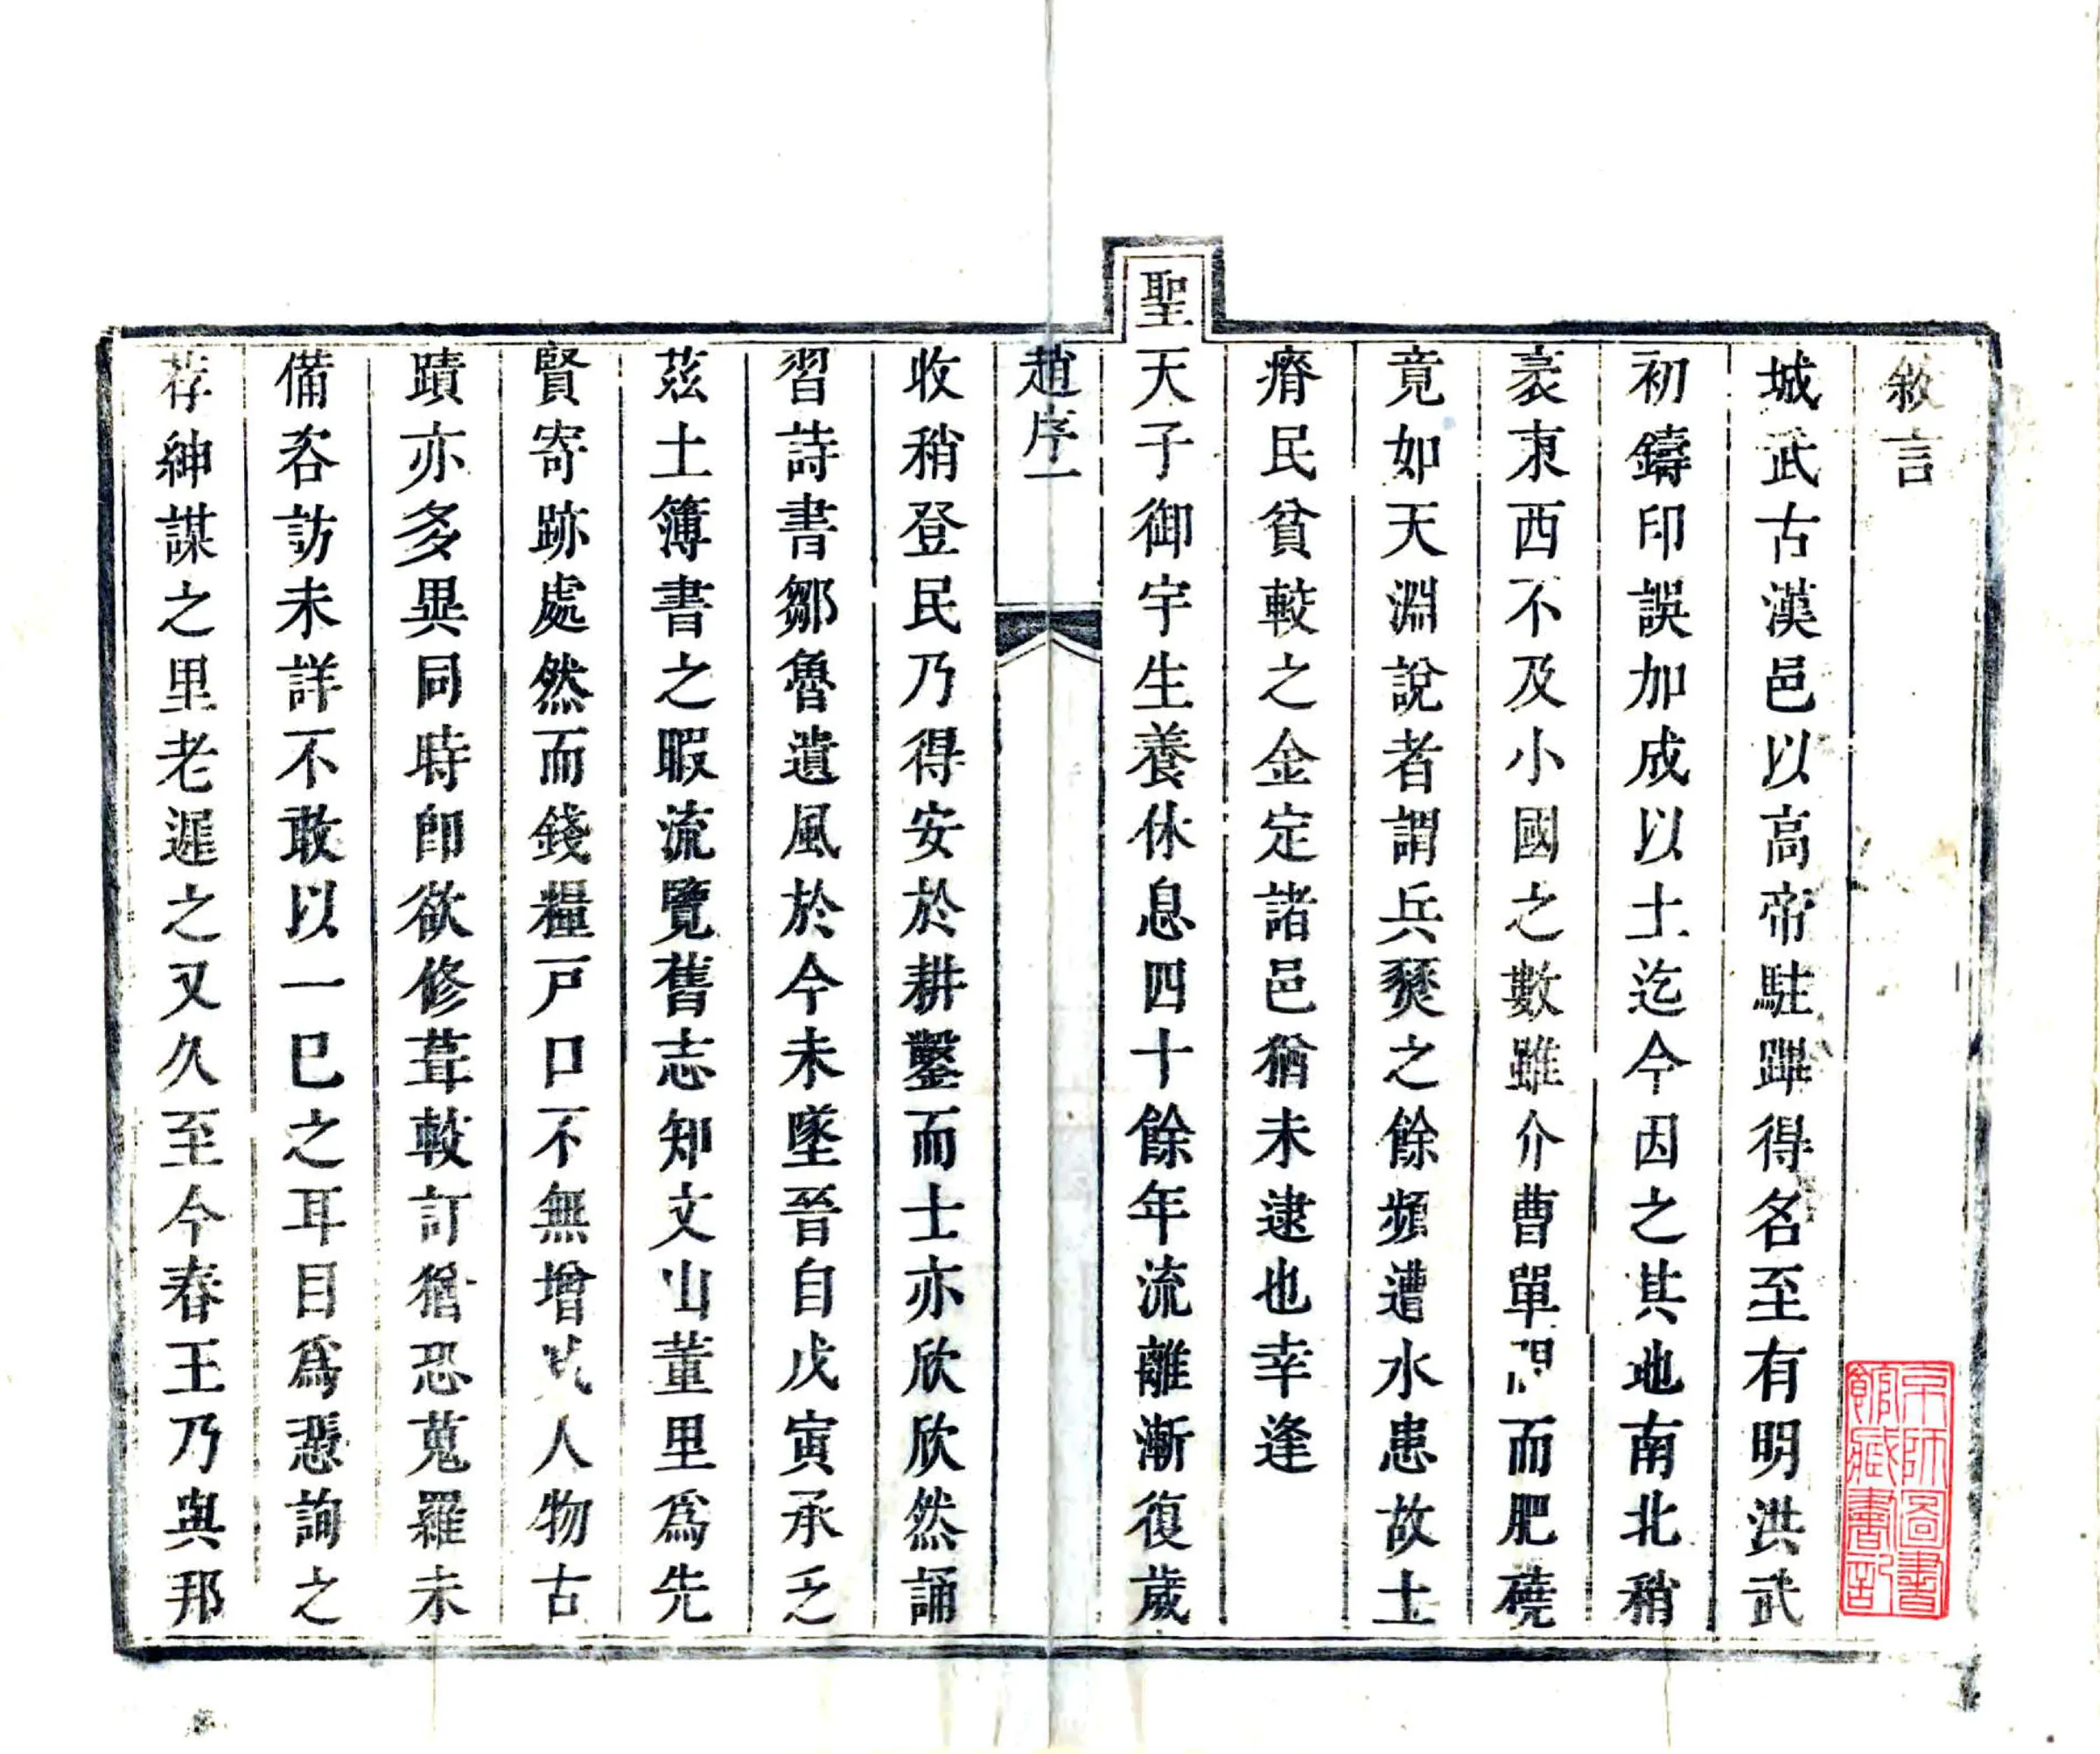 敘言
城武古漢邑以高帝駐蹕得名至有明洪武
初鑄印誤加成以土迄今因之其地南北稍
袤東西不及小國之數雖介曹單間而肥磽
竟如天淵說者謂兵燹之餘頻遭水患故土
瘠民貧較之金定諸邑猶未逮也幸逢
聖天子御宇生養休息四十餘年流離漸復歲
趙序一
收稍登民乃得安於耕鑿而士亦欣欣然誦
習詩書鄒魯遺風於今未墜晉自戊寅承乏
茲土簿書之暇流覽舊志知文山董里為先
賢寄跡處然而錢糧戸口不無增減人物古
蹟亦多異同時即欲修葺較訂猶恐蒐羅未
備咨訪未詳不敢以一已之耳目為憑詢之
荐紳謀之里老遲之又久至今春王乃與邦
京師圖書
館藏書記